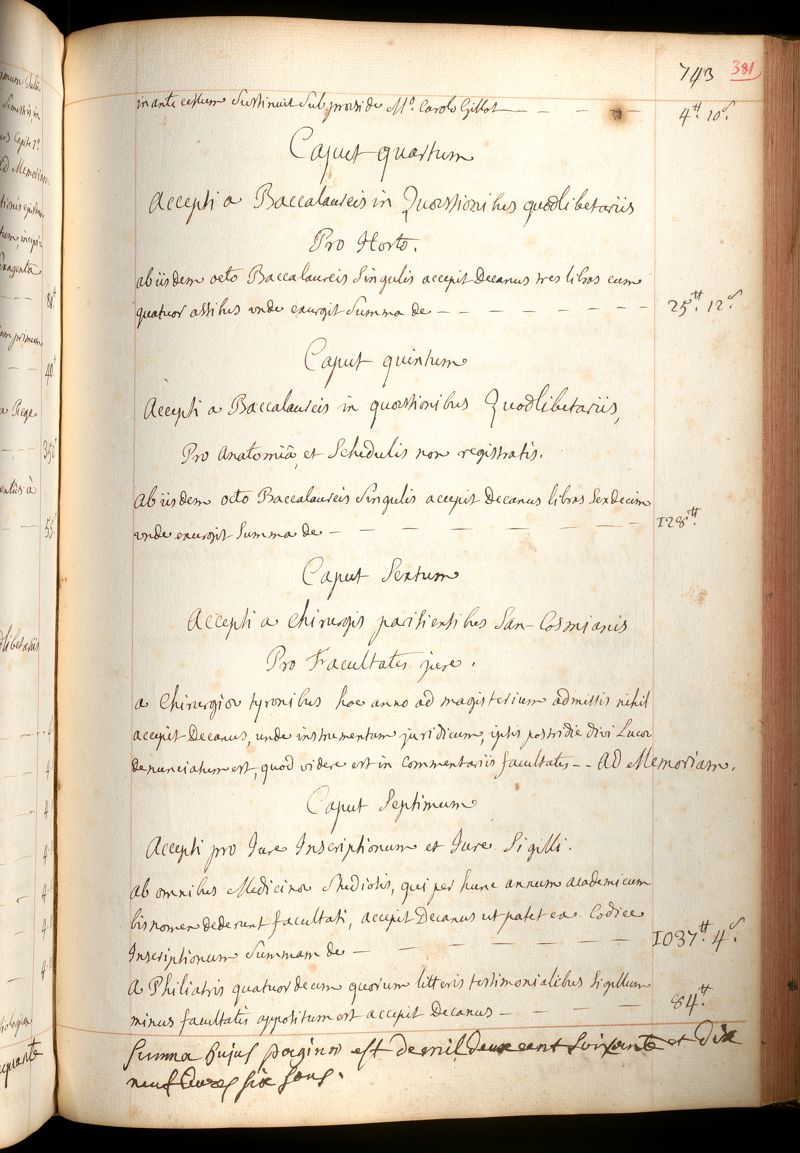 743 381
in antecessum sustinuit sub praeside M.º Carolo Gillot — — — — 4.tt 10.s
Caput quartum
Accepti a Baccalaureis in Quaestionibus quodlibetariis
Pro Horto.
ab iisdem octo Baccalaureis singulis accepit Decanus tres libras cum
quatuor assibus unde exurgit Summa de — — — — — — — — 25.tt 12.s
Caput quintum
Accepti a Baccalaureis in quaestionibus Quodlibetariis,
Pro Anatomiâ et Schedulis non registratis.
ab iisdem octo Baccalaureis singulis accepit Decanus libras sexdecim
unde exurgit Summa de — — — — — — — — 128.tt
Caput Sextum
Accepti a Chirurgis parisiensibus San-Cosmianis
Pro Facultatis jure.
a Chirurgiae tyronibus hoc anno ad magisterium admissis nihil
accepit Decanus, unde instrumentum juridicum, ipsis postridie divi Lucae
denunciatum est, quod videre est in Commentariis facultatis -- Ad Memoriam.
Caput Septimum
Accepti pro Jure Inscriptionum et Jure Sigilli.
ab omnibus Medicinae Studiosis, qui per hunc annum academicum
bis nomen dederunt facultati, accepit Decanus ut patet ex Codice
Inscriptionum Summam de — — — — — — — 1037.tt 4.s
a Philiatris quatuordecim quorum litteris testimonialibus sigillum
minus facultatis appositum est accepit Decanus — — — — 84.tt
Summa hujus paginae est de mil deux cent soixante et dix
neuf livres six sous.